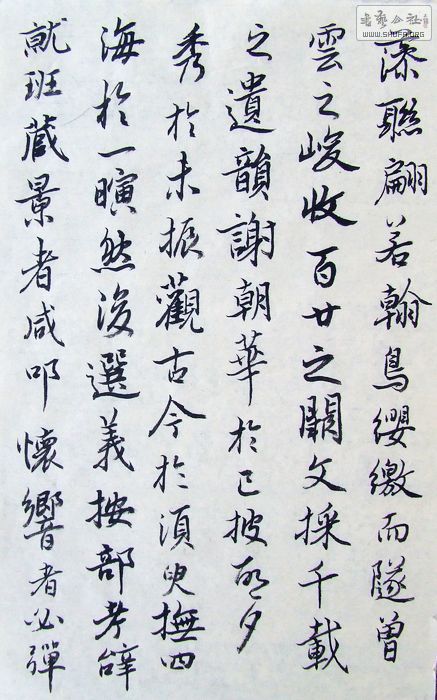 書藝公社
WWW.SHUFA.ORG
藻聯翩若翰鳥纓繳而隧曾
雲之峻收百世之闕文採千載
之遺韻謝朝華於已披啓夕
秀於未振觀古今於須臾撫四
海於一瞚然後選義按部考辭
就班藏景者咸叩懷響者必彈